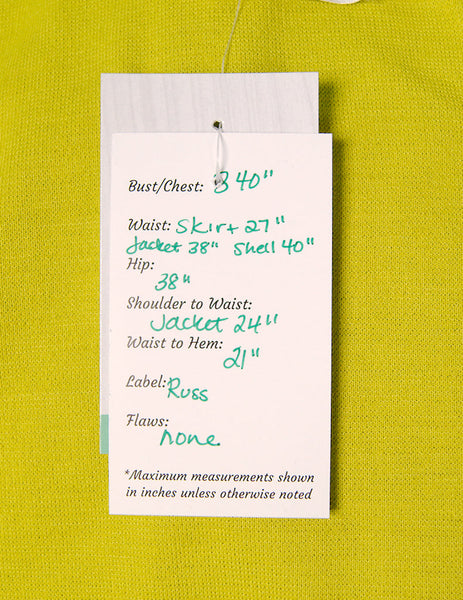 Bust/Chest: B 40"
Waist: Skirt 27"
Jacket 38" Shell 40"
Hip:
38"
Shoulder to Waist:
Jacket 24"
Waist to Hem:
21"
Label: Russ
Flaws:
none
*Maximum measurements shown
in inches unless otherwise noted